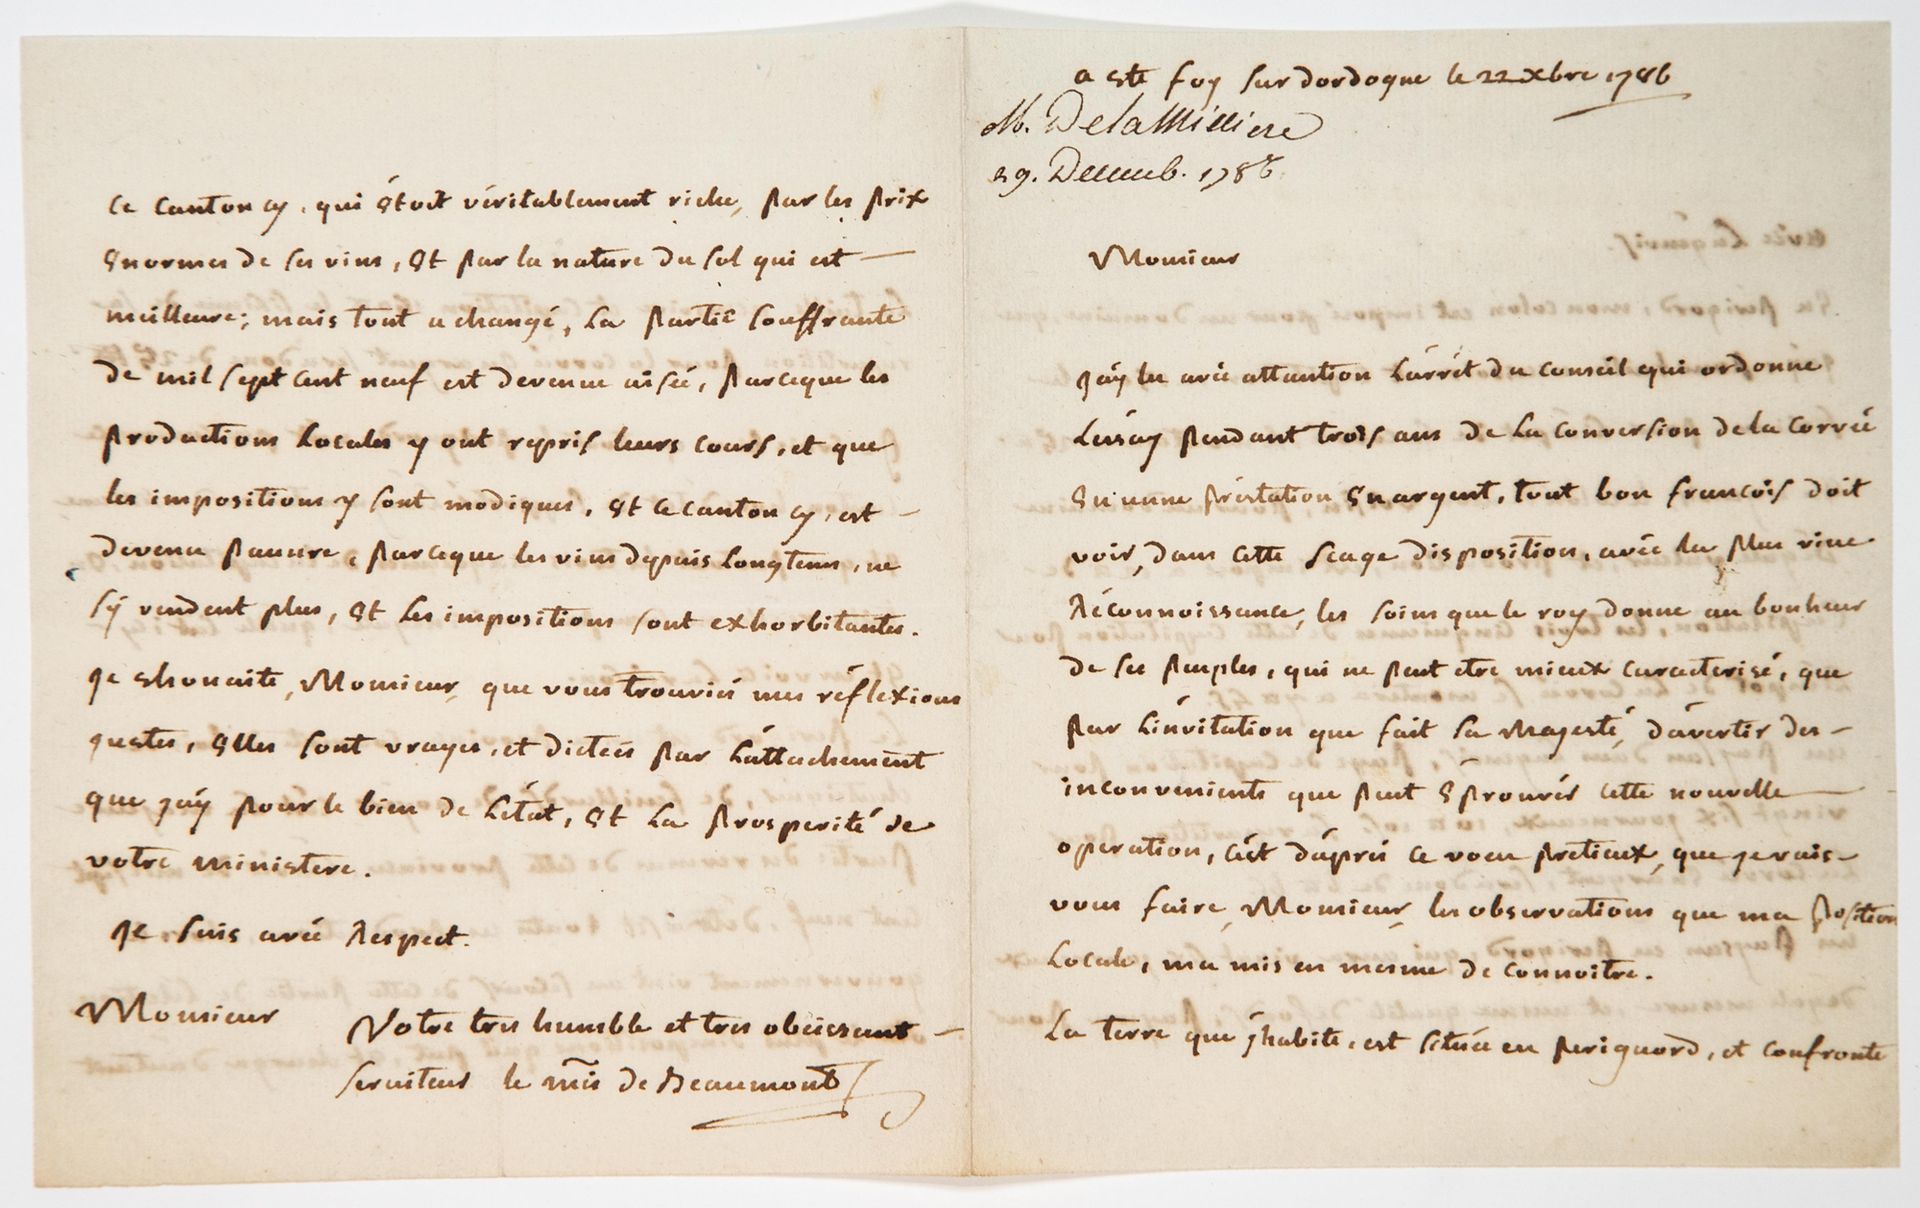 a ste foy sur dordogne le 22 xbre 1786
M. De la Milliere
29. Decemb. 1786
Monsieur
jay lu avec attantion L'árrét du conseil qui ordonne
Léssay pendant trois ans de La conversion de la corvée
En unne préstation En argent, tout bon francois doit
voir, dans cette seage disposition, avéc la plus vive
Réconnoissance, les soins que le roy donne au bonheur
de ses peuples, qui ne peut etre mieux caracterisé, que
par L'invitation que fait sa Majesté, d'avertir des
inconvenients que peut Eprouvér cette nouvelle
operation, c'ést d'áprés ce voeu pretieux, que je vais
vous faire, Monsieur, les observations que ma position
Locale, ma mis en mesme de connoitre.
La terre que j'habite, est située en periguord, et confronte
ce canton cy, qui étoit véritablement riche, par les prix
Enormes de ses vins, Et par la nature du sol qui est
meilleure; mais tout a changé, La partie souffrante
de mil sept cent neuf est devenue aisée, parceque les
productions Locales y ont repris leurs cours, et que
les impositions y sont modiques, Et ce canton cy, est
devenu pauvre, parceque les vins depuis Longtems, ne
s'y vendent plus, Et Les impositions sont exhorbitantes.
je shouaite, Monsieur, que vous trouviés mes réflexions
justes, Elles sont vrayes, et dictées par L'áttachement
que j'áy pour le bien de L'état, Et La prosperité de
votre ministere.
je suis avéc Respect.
Monsieur
Votre tres humble et tres obeissant
serviteur le mis de Beaumont